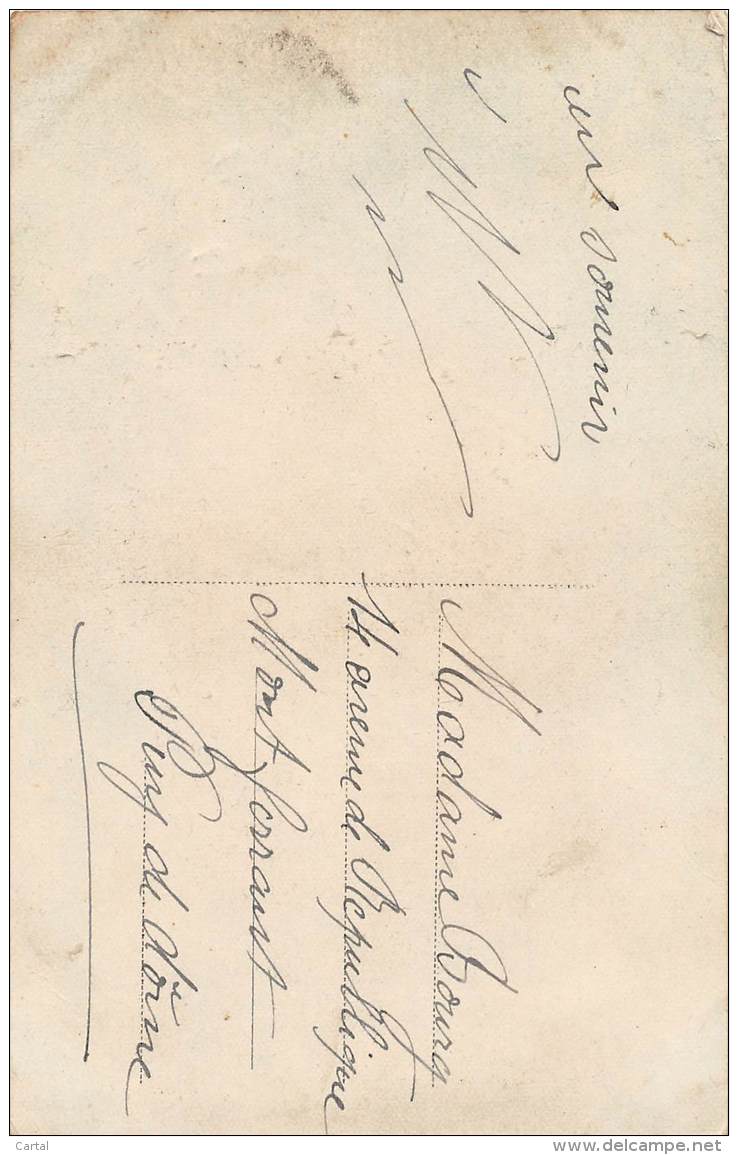 un souvenir
Madame Bourg
14 avenue de Republique
Montferrant
Puy de Dôme
Cartal
www.delcampe.net